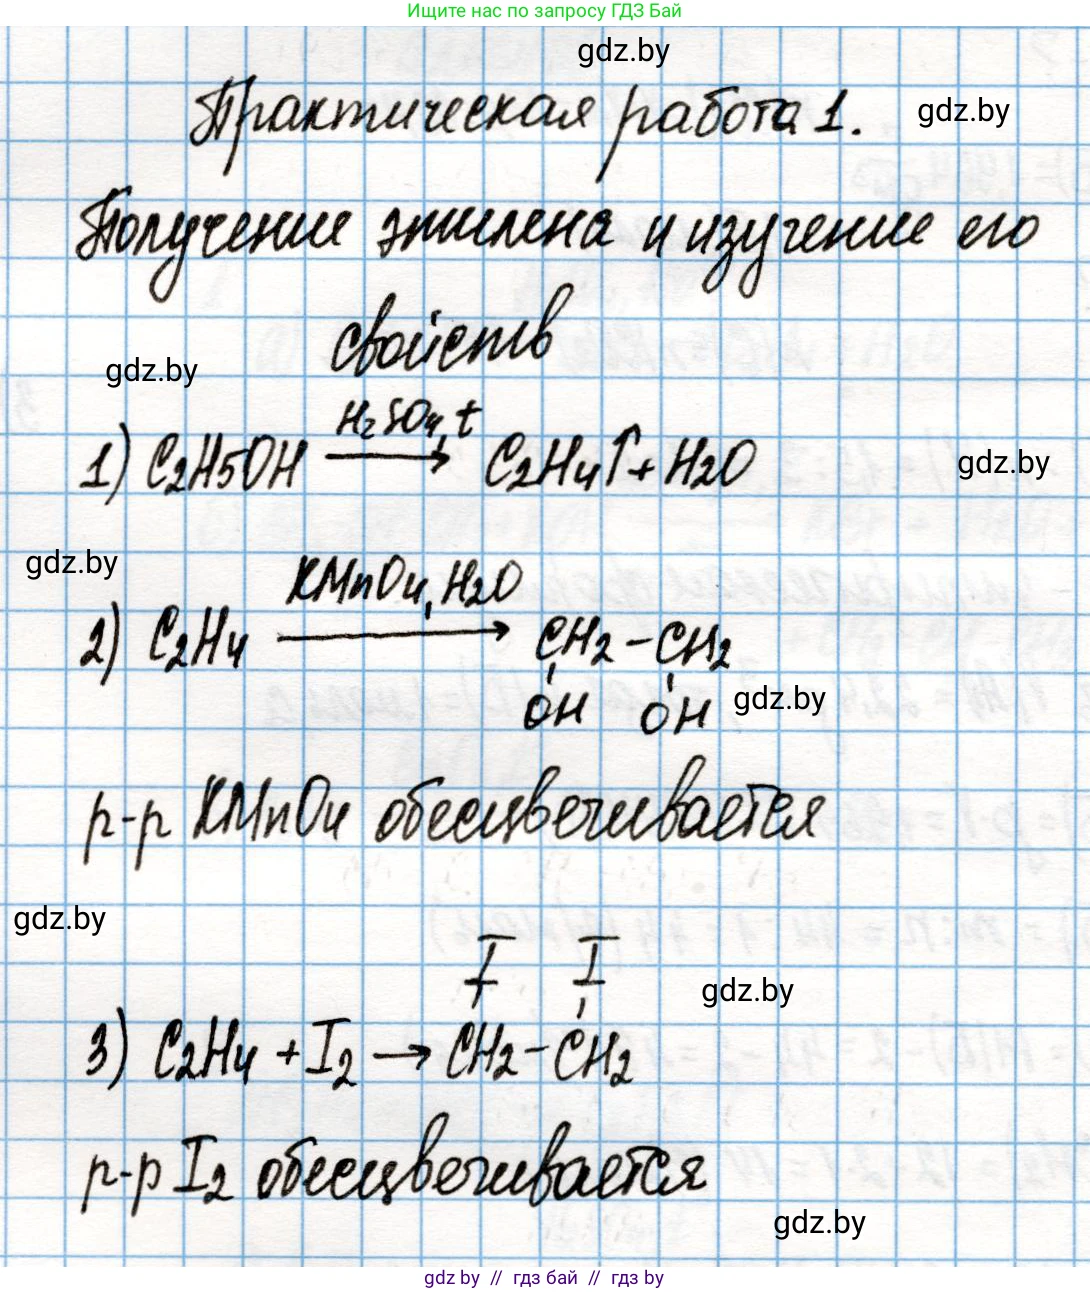 Ищите нас по запросу ГДЗ Бай
gdz.by
Практическая работа 1.
gdz.by
Получение этилена и изучение его
свойств
gdz.by
H2SO4, t
1) C2H5OH → C2H4↑ + H2O
gdz.by
gdz.by
KMnO4, H2O
2) C2H4 → CH2 - CH2
OH OH
gdz.by
р-р KMnO4 обесцвечивается
gdz.by
I I
gdz.by
3) C2H4 + I2 → CH2 - CH2
р-р I2 обесцвечивается
gdz.by
gdz.by // гдз бай // гдз by